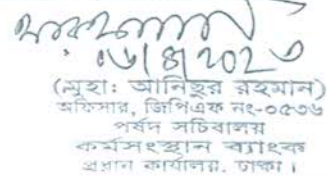 (মুহাঃ আনিছুর রহমান)
অফিসার, জিপিএফ নং-০৫৩৬
পর্ষদ সচিবালয়
কর্মসংস্থান ব্যাংক
প্রধান কার্যালয়, ঢাকা।